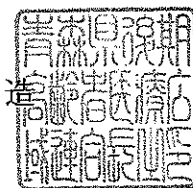 青森県後期
高齢者医療広
域連合長之印
造